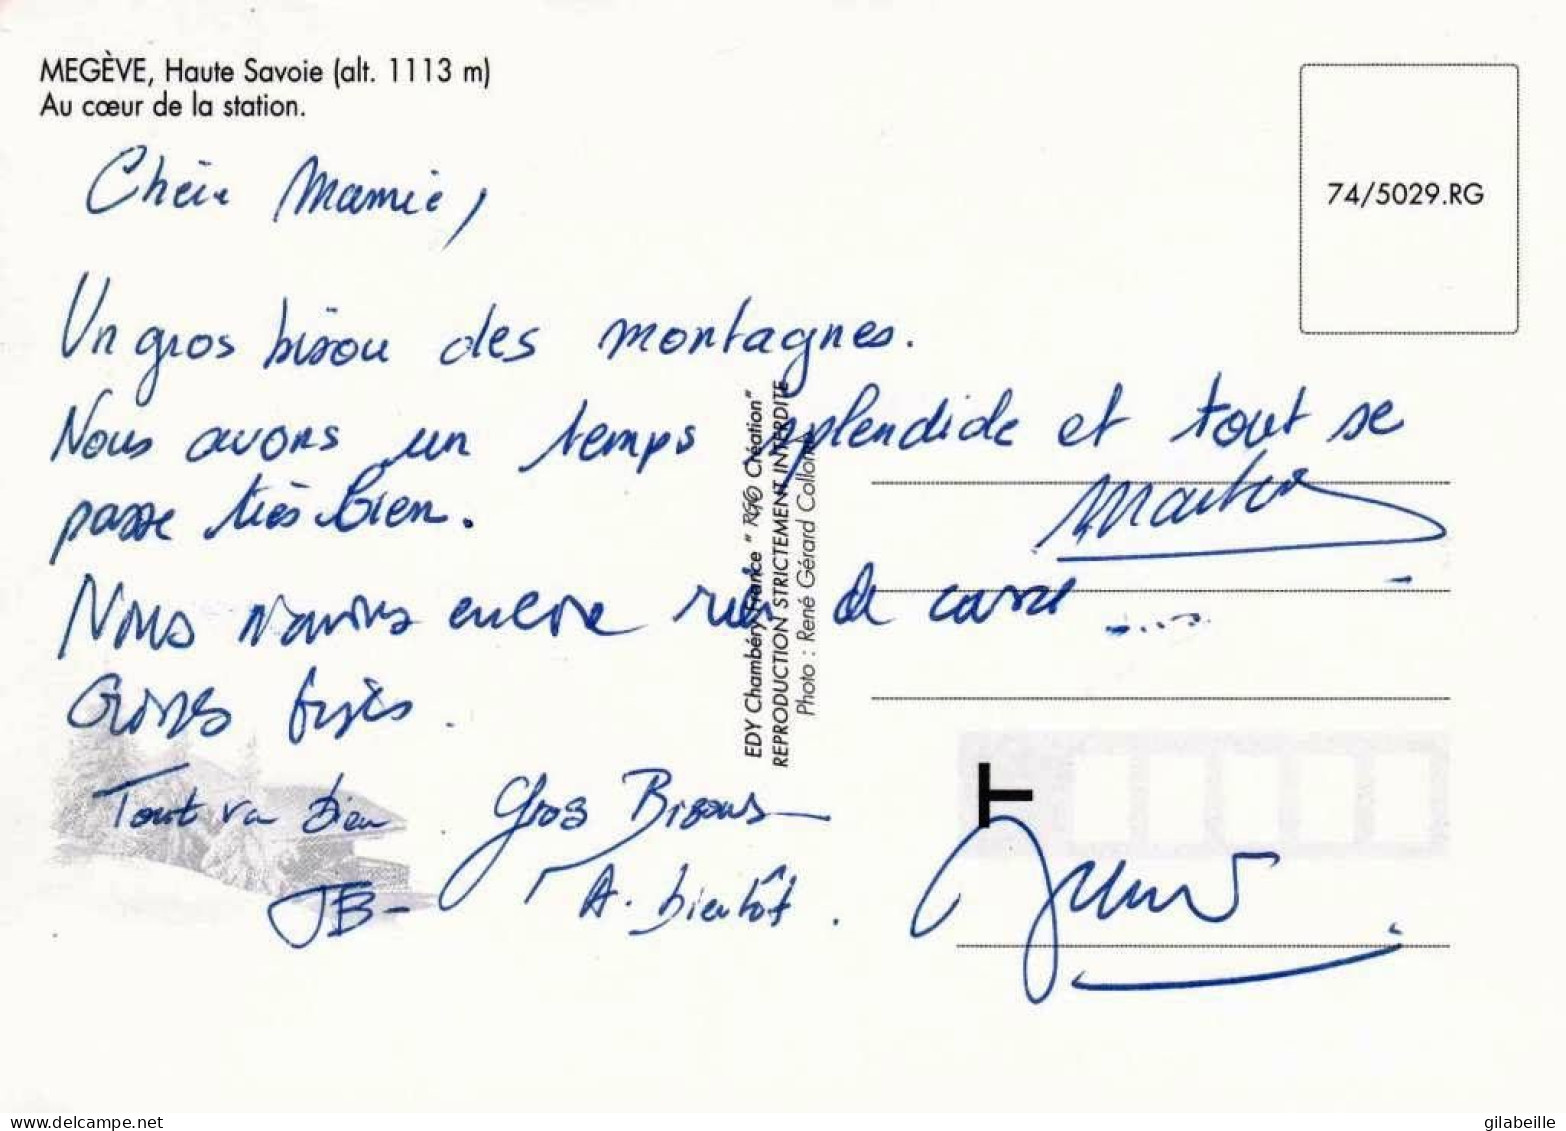 MEGÈVE, Haute Savoie (alt. 1113 m)
Au cœur de la station.
74/5029.RG
Chère Mamie,
Un gros bisou des montagnes.
Nous avons un temps splendide et tout se
passe très bien.
Nous n'avons encore rien de cassé ....
Grosses bises.
Tout va bien
JB-
Gros Bisous
A. bientôt.
EDY Chambéry France "RG Création"
REPRODUCTION STRICTEMENT INTERDITE
Photo : René Gérard Collomb
T
delcampe.net
gilabeille